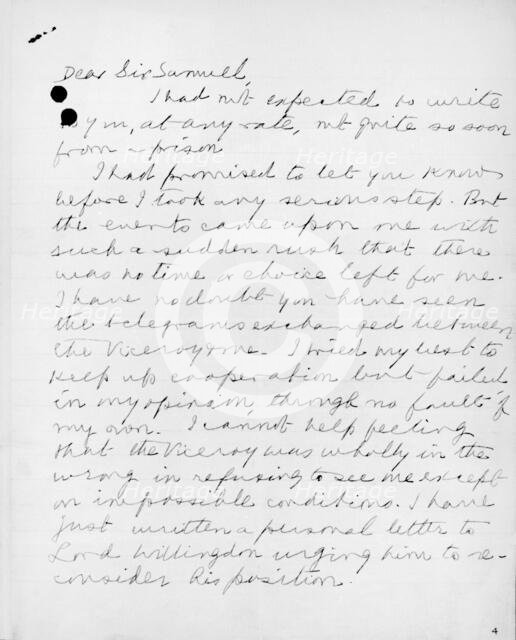 Dear Sir Samuel,
I had not expected to write
to you, at any rate, not quite so soon
from a prison
I had promised to let you know
before I took any serious step. But
the events came upon me with
such a sudden rush that there
was no time or choice left for me.
I have no doubt you have seen
the telegrams exchanged between
the Viceroy & me. I tried my best to
keep up cooperation but failed
in my opinion, through no fault of
my own. I cannot help feeling
that the Viceroy was wholly in the
wrong in refusing to see me except
on impossible conditions. I have
just written a personal letter to
Lord Willingdon urging him to re-
consider his position.
4
Heritage
Heritage
Heritage
Heritage
Heritage
Heritage
Heritage